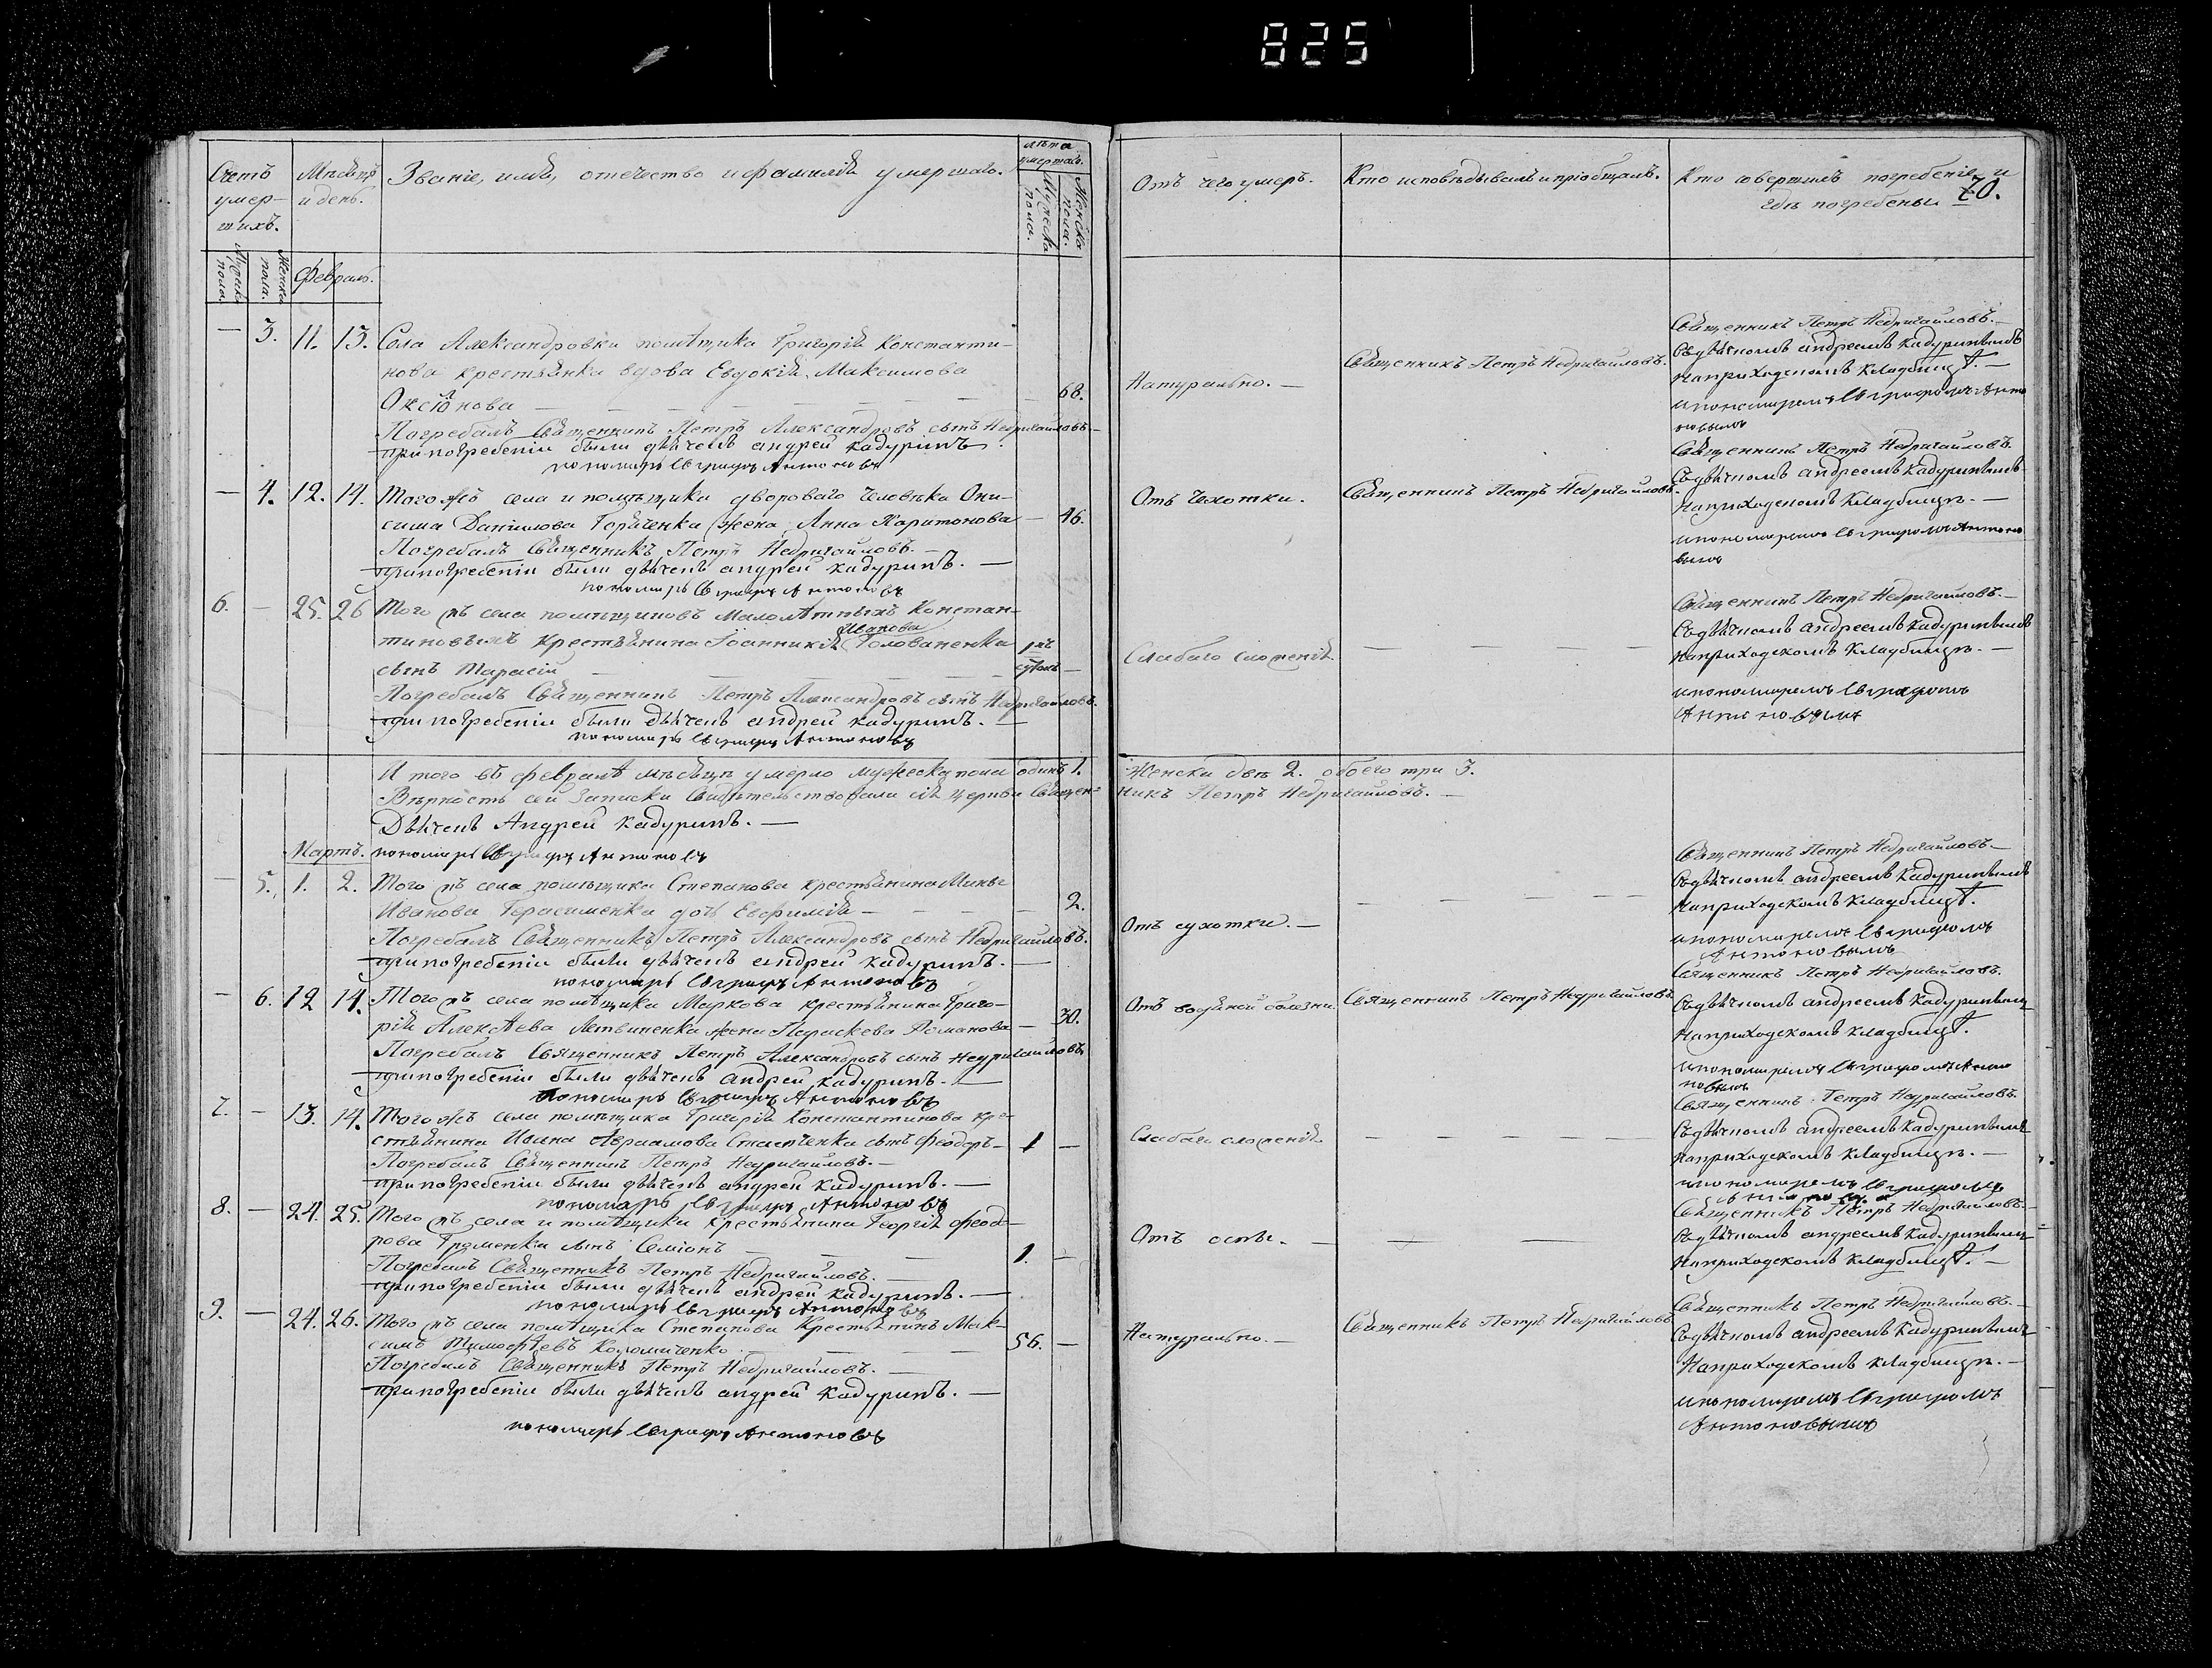 825
Счетъ умер-шихъ.
Мѣсяцъ и день.
Званіе, имя, отечество и фамилія умершаго.
лѣта умершаго.
Мужеска пола.
Женска пола.
Отъ чего умеръ.
Кто исповѣдывалъ и пріобщалъ.
Кто совершилъ погребеніе и
гдѣ погребены.
70.
Мужеска пола.
Женска пола.
Февраль.
— 3. 11. 13. Села Александровки помѣщика Григорія Константи-
нова крестьянка вдова Евдокія Максимова
Оксіонова — 68.
Погребалъ Священникъ Петръ Александровъ сынъ Недригайловъ.—
при погребеніи были дьячекъ андрей кадуринъ.
пономарь Евграфъ Антоновъ
Натурально. —
Священникъ Петръ Недригайловъ.
Священникъ Петръ Недригайловъ.—
Съ дьячкомъ андреемъ кадуринымъ
на приходскомъ кладбищѣ. —
и пономаремъ Евграфомъ Анто
новымъ
— 4. 12. 14. Того жъ села и помѣщика двороваго человѣка Они-
сима Данилова Горяченка жена Анна Харитонова — 46.
Погребалъ Священникъ Петръ Недригайловъ. —
при погребеніи были дьячекъ андрей кадуринъ. —
пономарь Евграфъ Антоновъ
Отъ чехотки.
Священникъ Петръ Недригайловъ.
Священникъ Петръ Недригайловъ.
Съ дьячкомъ андреемъ кадуринымъ
на приходскомъ кладбищѣ. —
и пономаремъ Евграфомъ Антоно
вымъ
6. — 25. 26 Того жъ села помѣщиковъ малолѣтныхъ Констан-
тиновыхъ крестьянина Іоанникія Иванова Голованенка
сынъ Тарасій —
Погребалъ Священникъ Петръ Александровъ сынъ Недригайловъ.
при погребеніи были дьячекъ андрей кадуринъ. —
пономарь Евграфъ Антоновъ
Слабаго сложенія
— — — —
Священникъ Петръ Недригайловъ.—
Съ дьячкомъ андреемъ кадуринымъ
на приходскомъ кладбищѣ. —
и пономаремъ Евграфомъ
Антоновымъ
И того въ февралѣ мѣсяцѣ умерло мужеска пола одинъ 1. Женска двѣ 2. обоего три 3.
Вѣрность сей записки Свидѣтельствовали сія церкви Священ-никъ Петръ Недригайловъ. —
Дьячекъ Андрей кадуринъ. —
Мартъ. пономарь Евграфъ Антоновъ
— 5. 1. 2. Того жъ села помѣщика Степанова крестьянина Мины
Иванова Герасименка дочь Евфимія — 2.
Погребалъ Священникъ Петръ Александровъ сынъ Недригайловъ.
при погребеніи были дьячекъ андрей кадуринъ. —
пономарь Евграфъ Антоновъ
Отъ сухотки. —
— — — —
Священникъ Петръ Недригайловъ.—
Съ дьячкомъ андреемъ кадуринымъ
на приходскомъ кладбищѣ.
и пономаремъ Евграфомъ
Антоновымъ
— 6. 12 14. Того жъ села помѣщика Маркова крестьянина Григо-
рія Алексѣева Литвиненка жена Параскева Романова — 30.
Погребалъ Священникъ Петръ Александровъ сынъ Недригайловъ.
при погребеніи были дьячекъ андрей кадуринъ. —
пономарь Евграфъ Антоновъ
Отъ водяной болезни.
Священникъ Петръ Недригайловъ.
Священникъ Петръ Недригайловъ.
Съ дьячкомъ андреемъ кадуринымъ
на приходскомъ кладбищѣ.
и пономаремъ Евграфомъ Анто
новымъ
7. — 13. 14. Того жъ села помѣщика Григорія Константинова кре-
стьянина Ивана Авраамова сынъ Феодоръ — 1 —
Погребалъ Священникъ Петръ Недригайловъ. —
при погребеніи были дьячекъ андрей кадуринъ. —
пономарь Евграфъ Антоновъ
Слабаго сложенія
— — — —
Священникъ Петръ Недригайловъ.
Съ дьячкомъ андреемъ кадуринымъ
на приходскомъ кладбищѣ. —
и пономаремъ Евграфомъ
Антоновымъ
8. — 24. 25. Того жъ села и помѣщика крестьянина Георгія Феодо-
рова сынъ Симіонъ — 1. —
Погребалъ Священникъ Петръ Недригайловъ. —
при погребеніи были дьячекъ андрей кадуринъ. —
пономарь Евграфъ Антоновъ
Отъ оспы. —
— —
Священникъ Петръ Недригайловъ.—
Съ дьячкомъ андреемъ кадуринымъ
на приходскомъ кладбищѣ. —
9. — 24. 26. Того жъ села помѣщика Степанова крестьянинъ Мак-
симъ Тимофѣевъ Коломiченко — 56. —
Погребалъ Священникъ Петръ Недригайловъ. —
при погребеніи были дьячекъ андрей кадуринъ. —
пономарь Евграфъ Антоновъ
Натурально. —
Священникъ Петръ Недригайловъ
Священникъ Петръ Недригайловъ.—
Съ дьячкомъ андреемъ кадуринымъ
на приходскомъ кладбищѣ. —
и пономаремъ Евграфомъ
Антоновымъ